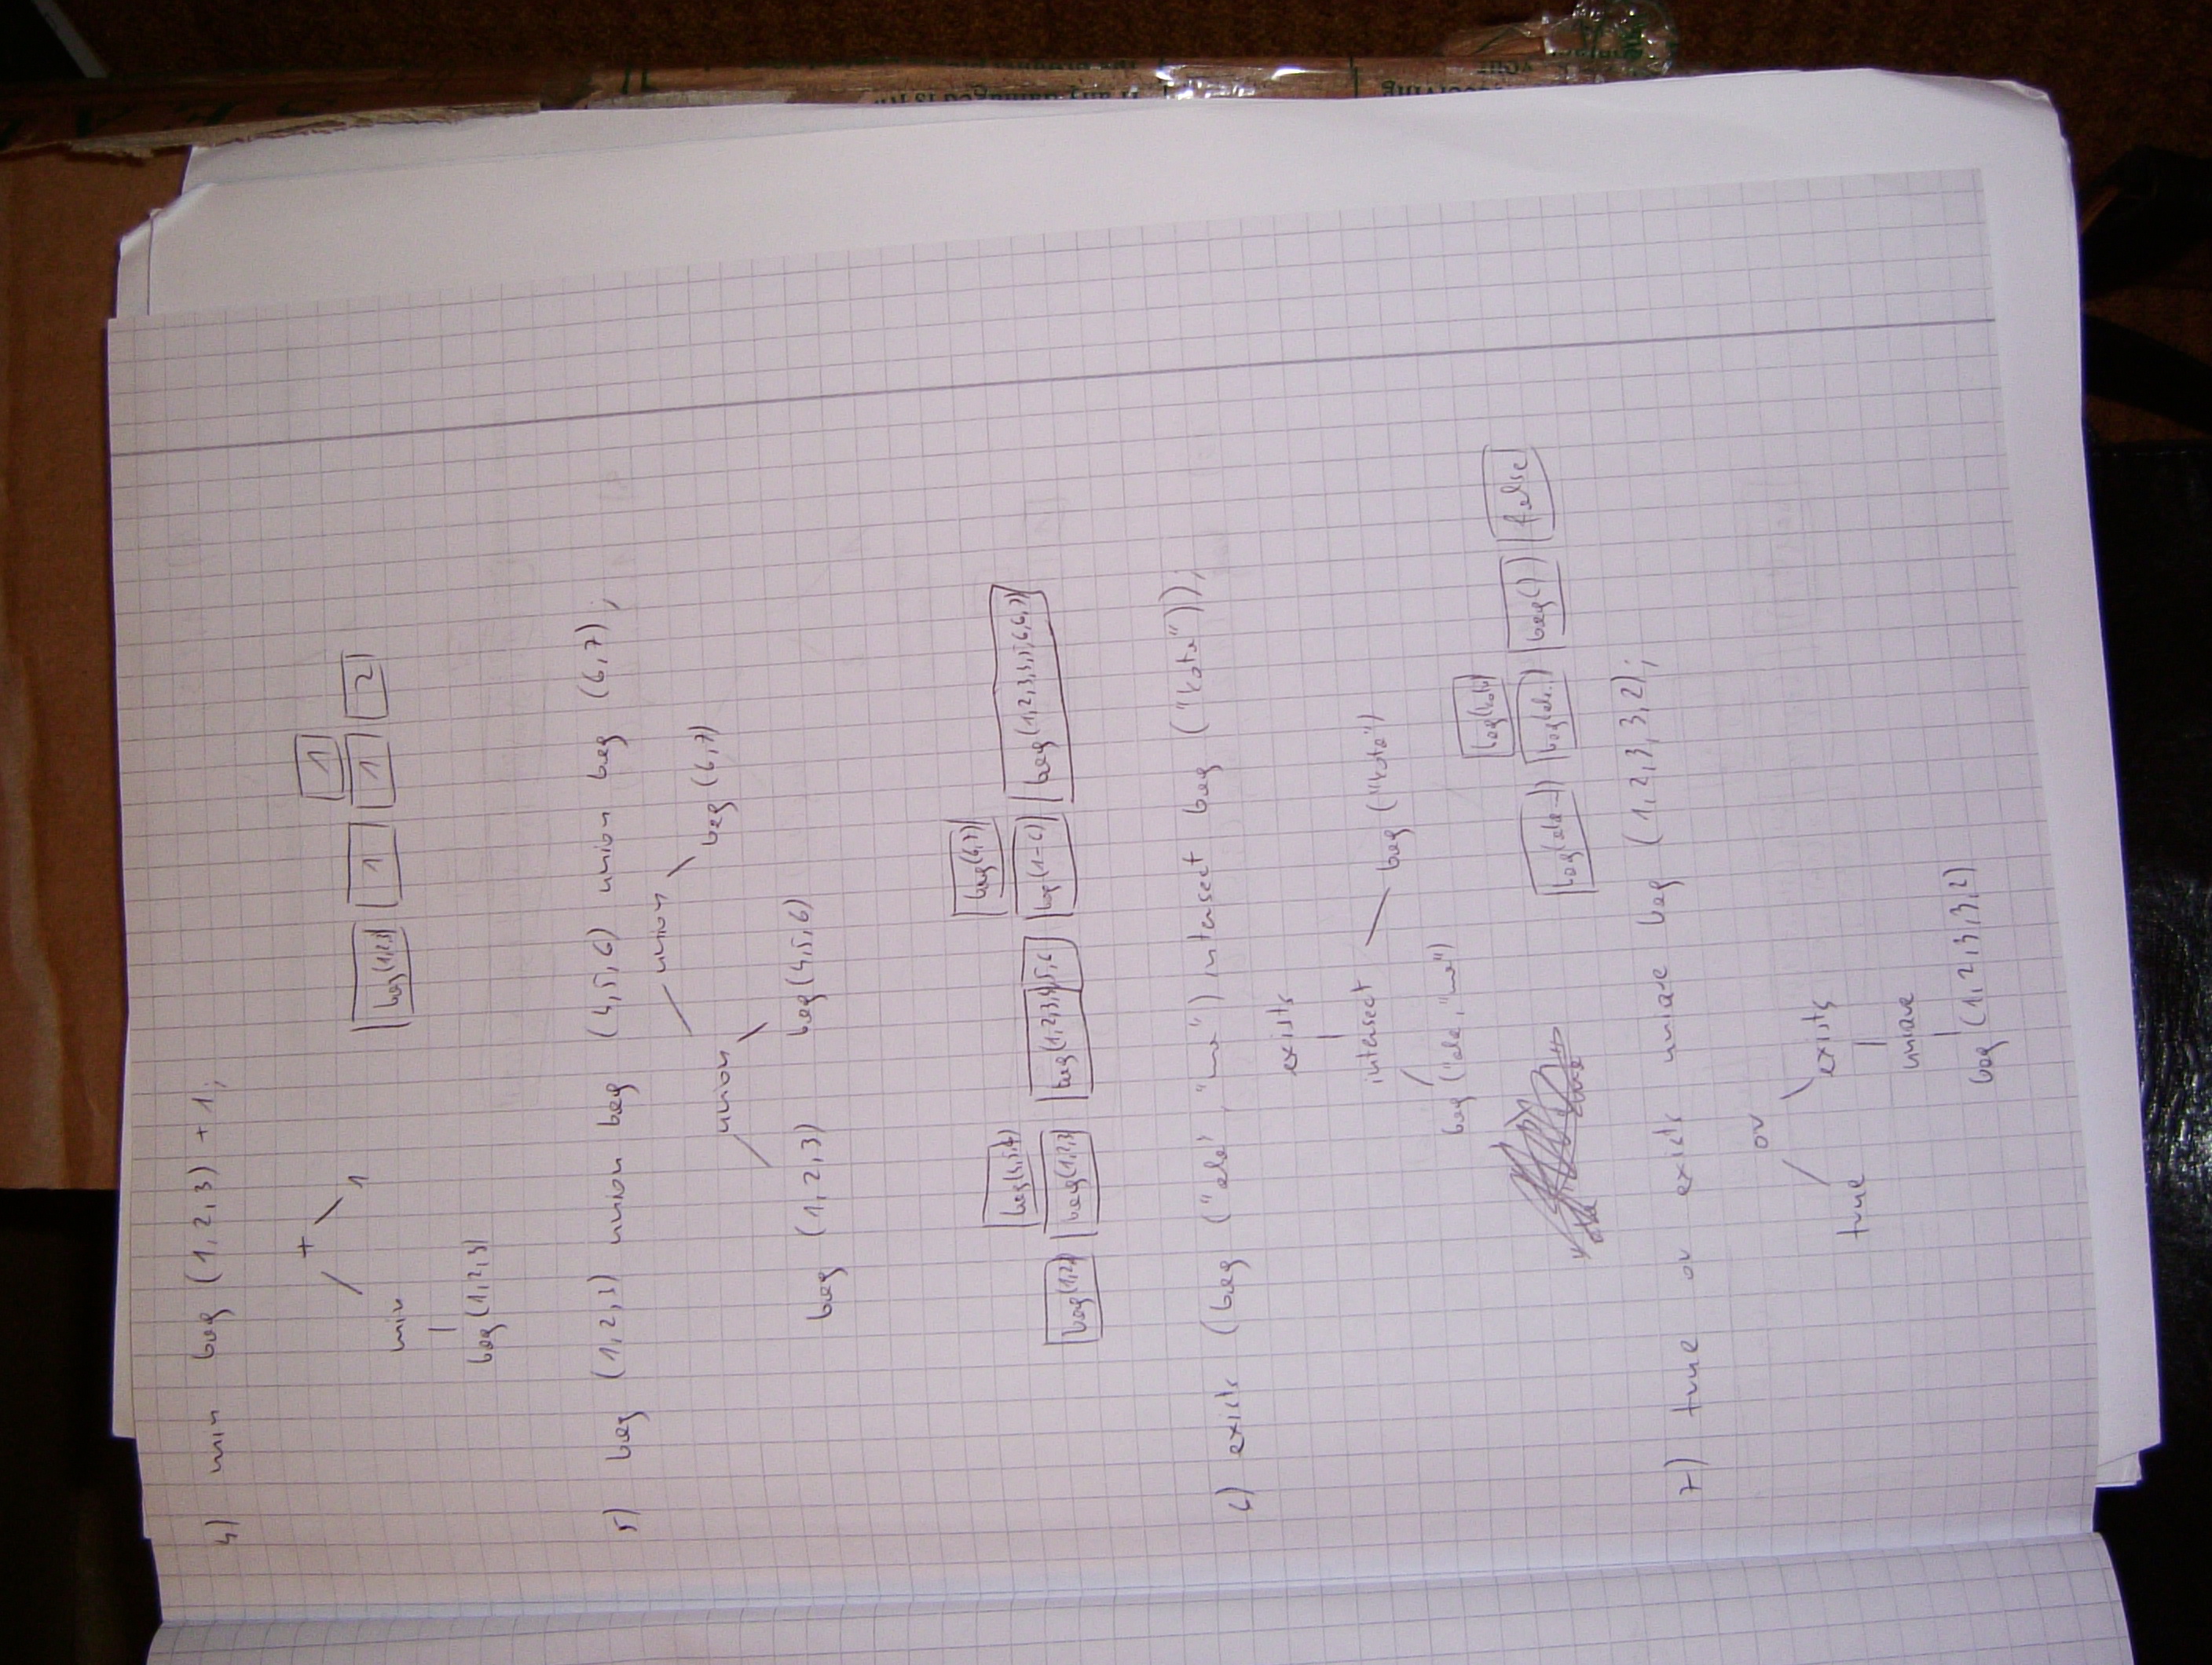 4) min bag (1,2,3) + 1;
+
min 1
bag (1,2,3)
bag(1,2,3) 1 1 1 2
5) bag (1,2,3) union bag (4,5,6) union bag (6,7);
union
union bag (6,7)
bag (1,2,3) bag (4,5,6)
bag(6,7)
bag(1,2,3)
bag(1-6)
6) exists (bag ("ala", "ma") intersect bag ("kota"));
exists
intersect
bag ("ala", "ma") bag ("kota")
bag(kota)
bag(ala..) bag(ala..) bag( ) false
7) true or exists uniqe bag (1,2,3,3,2);
or
true exists
uniqe
bag (1,2,3,3,2)